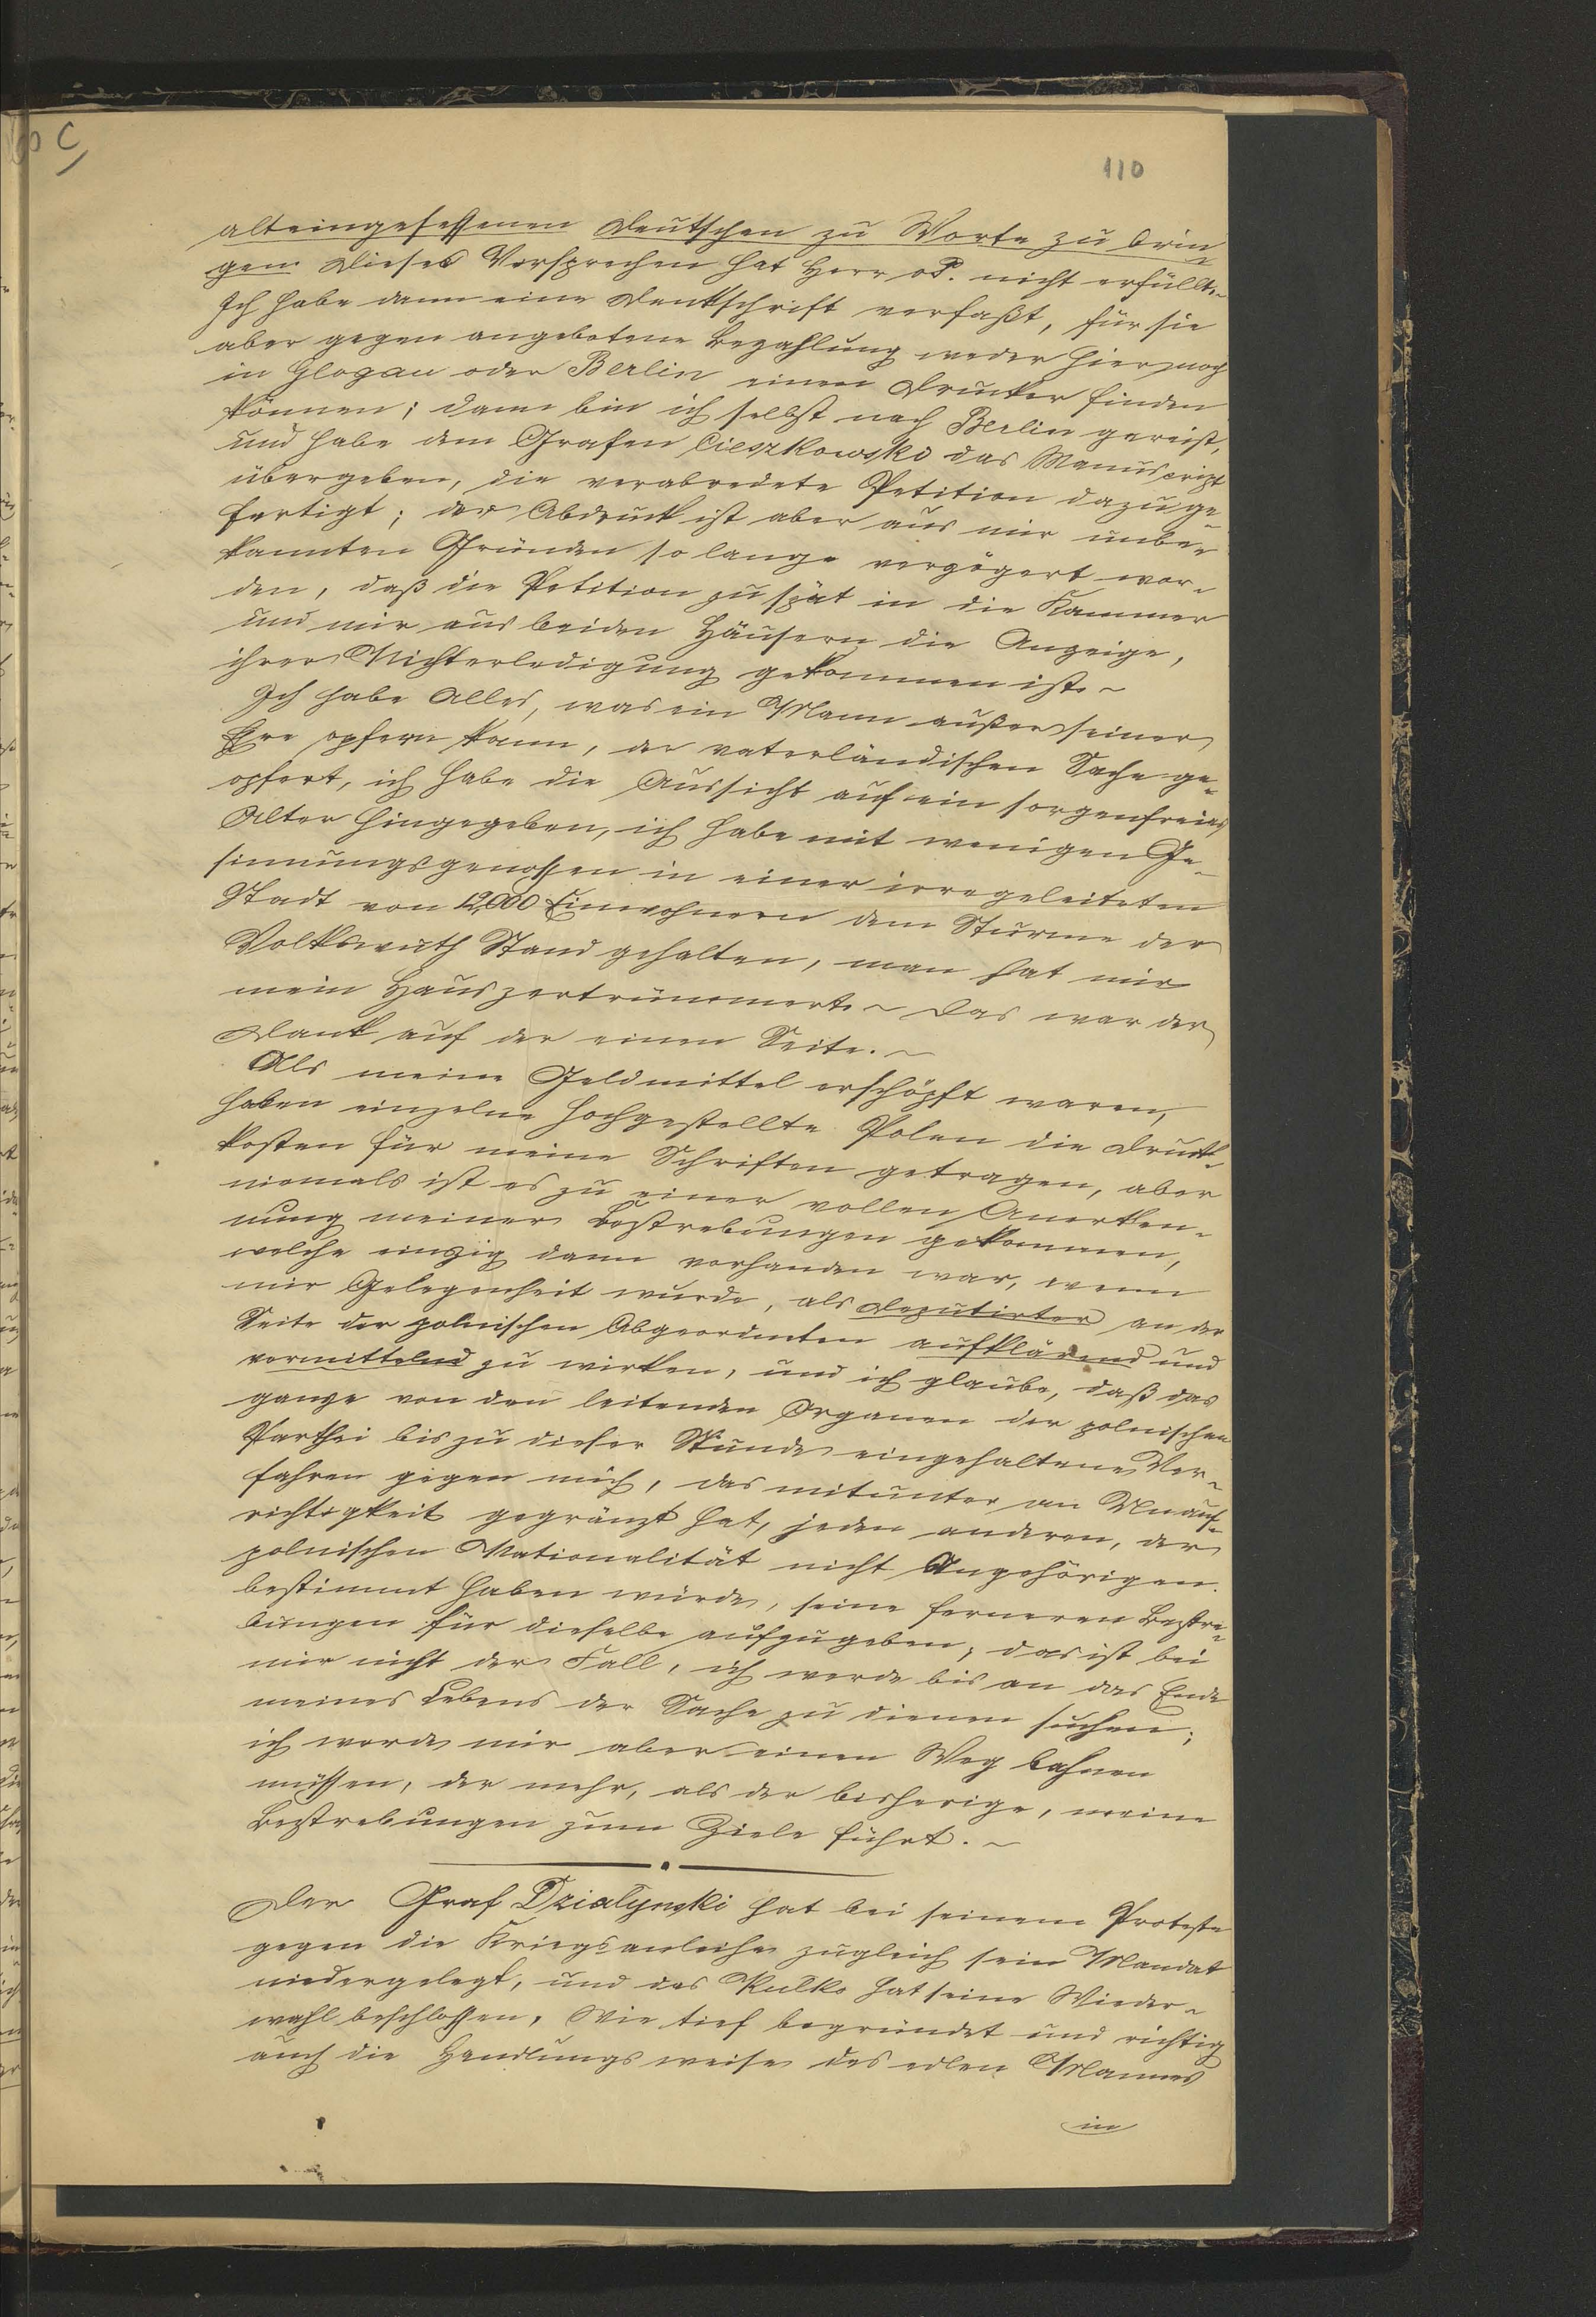 110
alteingesessenen Deutschen zu Worte zu brin-
gen. Dieses Versprechen hat Herr v P. nicht erfüllt. ~
Ich habe dann eine Denkschrift verfaßt, für sie
aber gegen angebotene Bezahlung weder hier noch
in Glogau oder Berlin einen Drucker finden
können; dann bin ich selbst nach Berlin gereist,
und habe dem Grafen Cieszkowski das Manuscript
übergeben, die verabredete Petition dazu ge-
fertigt; der Abdruck ist aber aus mir unbe-
kannten Gründen so lange verzögert wor-
den, daß die Petition zu spät in die Kammer
und mir aus beiden Häusern die Anzeige,
ihrer Nichterledigung gekommen ist. ~
Ich habe Alles, was ein Mann außer seiner
Ehre opfern kann, der vaterländischen Sache ge-
opfert, ich habe die Aussicht auf ein sorgenfreies
Alter hingegeben, ich habe mit wenigen Ge-
sinnungsgenossen in einer irregeleiteten
Stadt von 12,000 Einwohnern dem Sturme der
Volkswuth Stand gehalten, man hat mir
mein Haus zertrümmert. ~ Das war der
Dank auf der einen Seite. ~
Als meine Geldmittel erschöpft waren,
haben einzelne hochgestellte Polen die Druck-
kosten für meine Schriften getragen, aber
niemals ist es zu einer vollen Anerken-
nung meiner Bestrebungen gekommen,
welche einzig dann vorhanden war, wenn
mir Gelegenheit wurde, als Deputirter an der
Seite der polnischen Abgeordneten aufklärend und
vermittelnd zu wirken, und ich glaube, daß das
ganze von den leitenden Organen der polnischen
Parthei bis zu dieser Stunde eingehaltene Ver-
fahren gegen mich, das mitunter an Unauf-
richtigkeit gegränzt hat, jeden anderen, der
polnischen Nationalität nicht Angehörigen.
bestimmt haben würde, seine ferneren Bestre-
bungen für dieselbe aufzugeben; das ist bei
mir nicht der Fall, ich werde bis an das Ende
meines Lebens der Sache zu dienen suchen;
ich werde mir aber einen Weg bahnen
müssen, der mehr, als der bisherige, meine
Bestrebungen zum Ziele führt. ~
Der Graf Dzialynski hat bei seinem Proteste
gegen die Kriegsanleihe zugleich sein Mandat
niedergelegt, und das hat seine Wieder-
wahl beschlossen. Wie tief begründet und richtig
auch die Handlungsweise des edlen Mannes
in